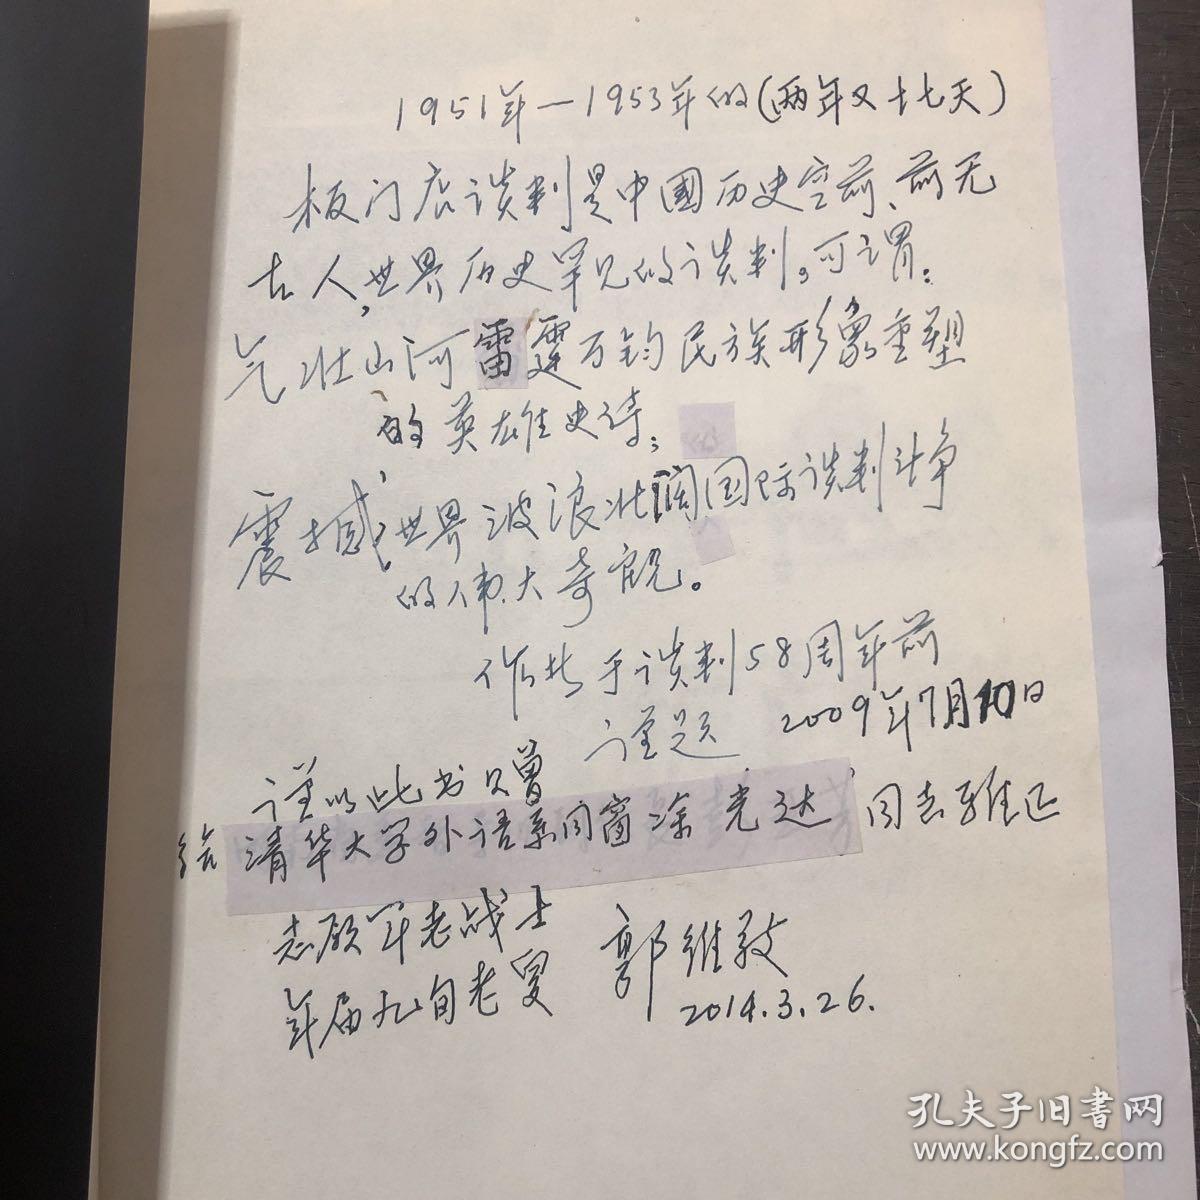 1951年—1953年的(两年又十七天)
板门店谈判是中國历史空前、前无
古人,世界历史罕见的谈判。可谓:
气壮山河雷霆万钧民族形象重塑
的英雄史诗;
震撼世界波浪壮阔国际谈判斗争
的伟大奇观。
作者于谈判58周年前
谨题 2009年7月10日
谨以此书贝曾
给清华大学外语系同窗涂光达同志雅正
志愿军老战士
年届九旬老叟 郭维敬
2014.3.26.
孔夫子旧书网
www.kongfz.com